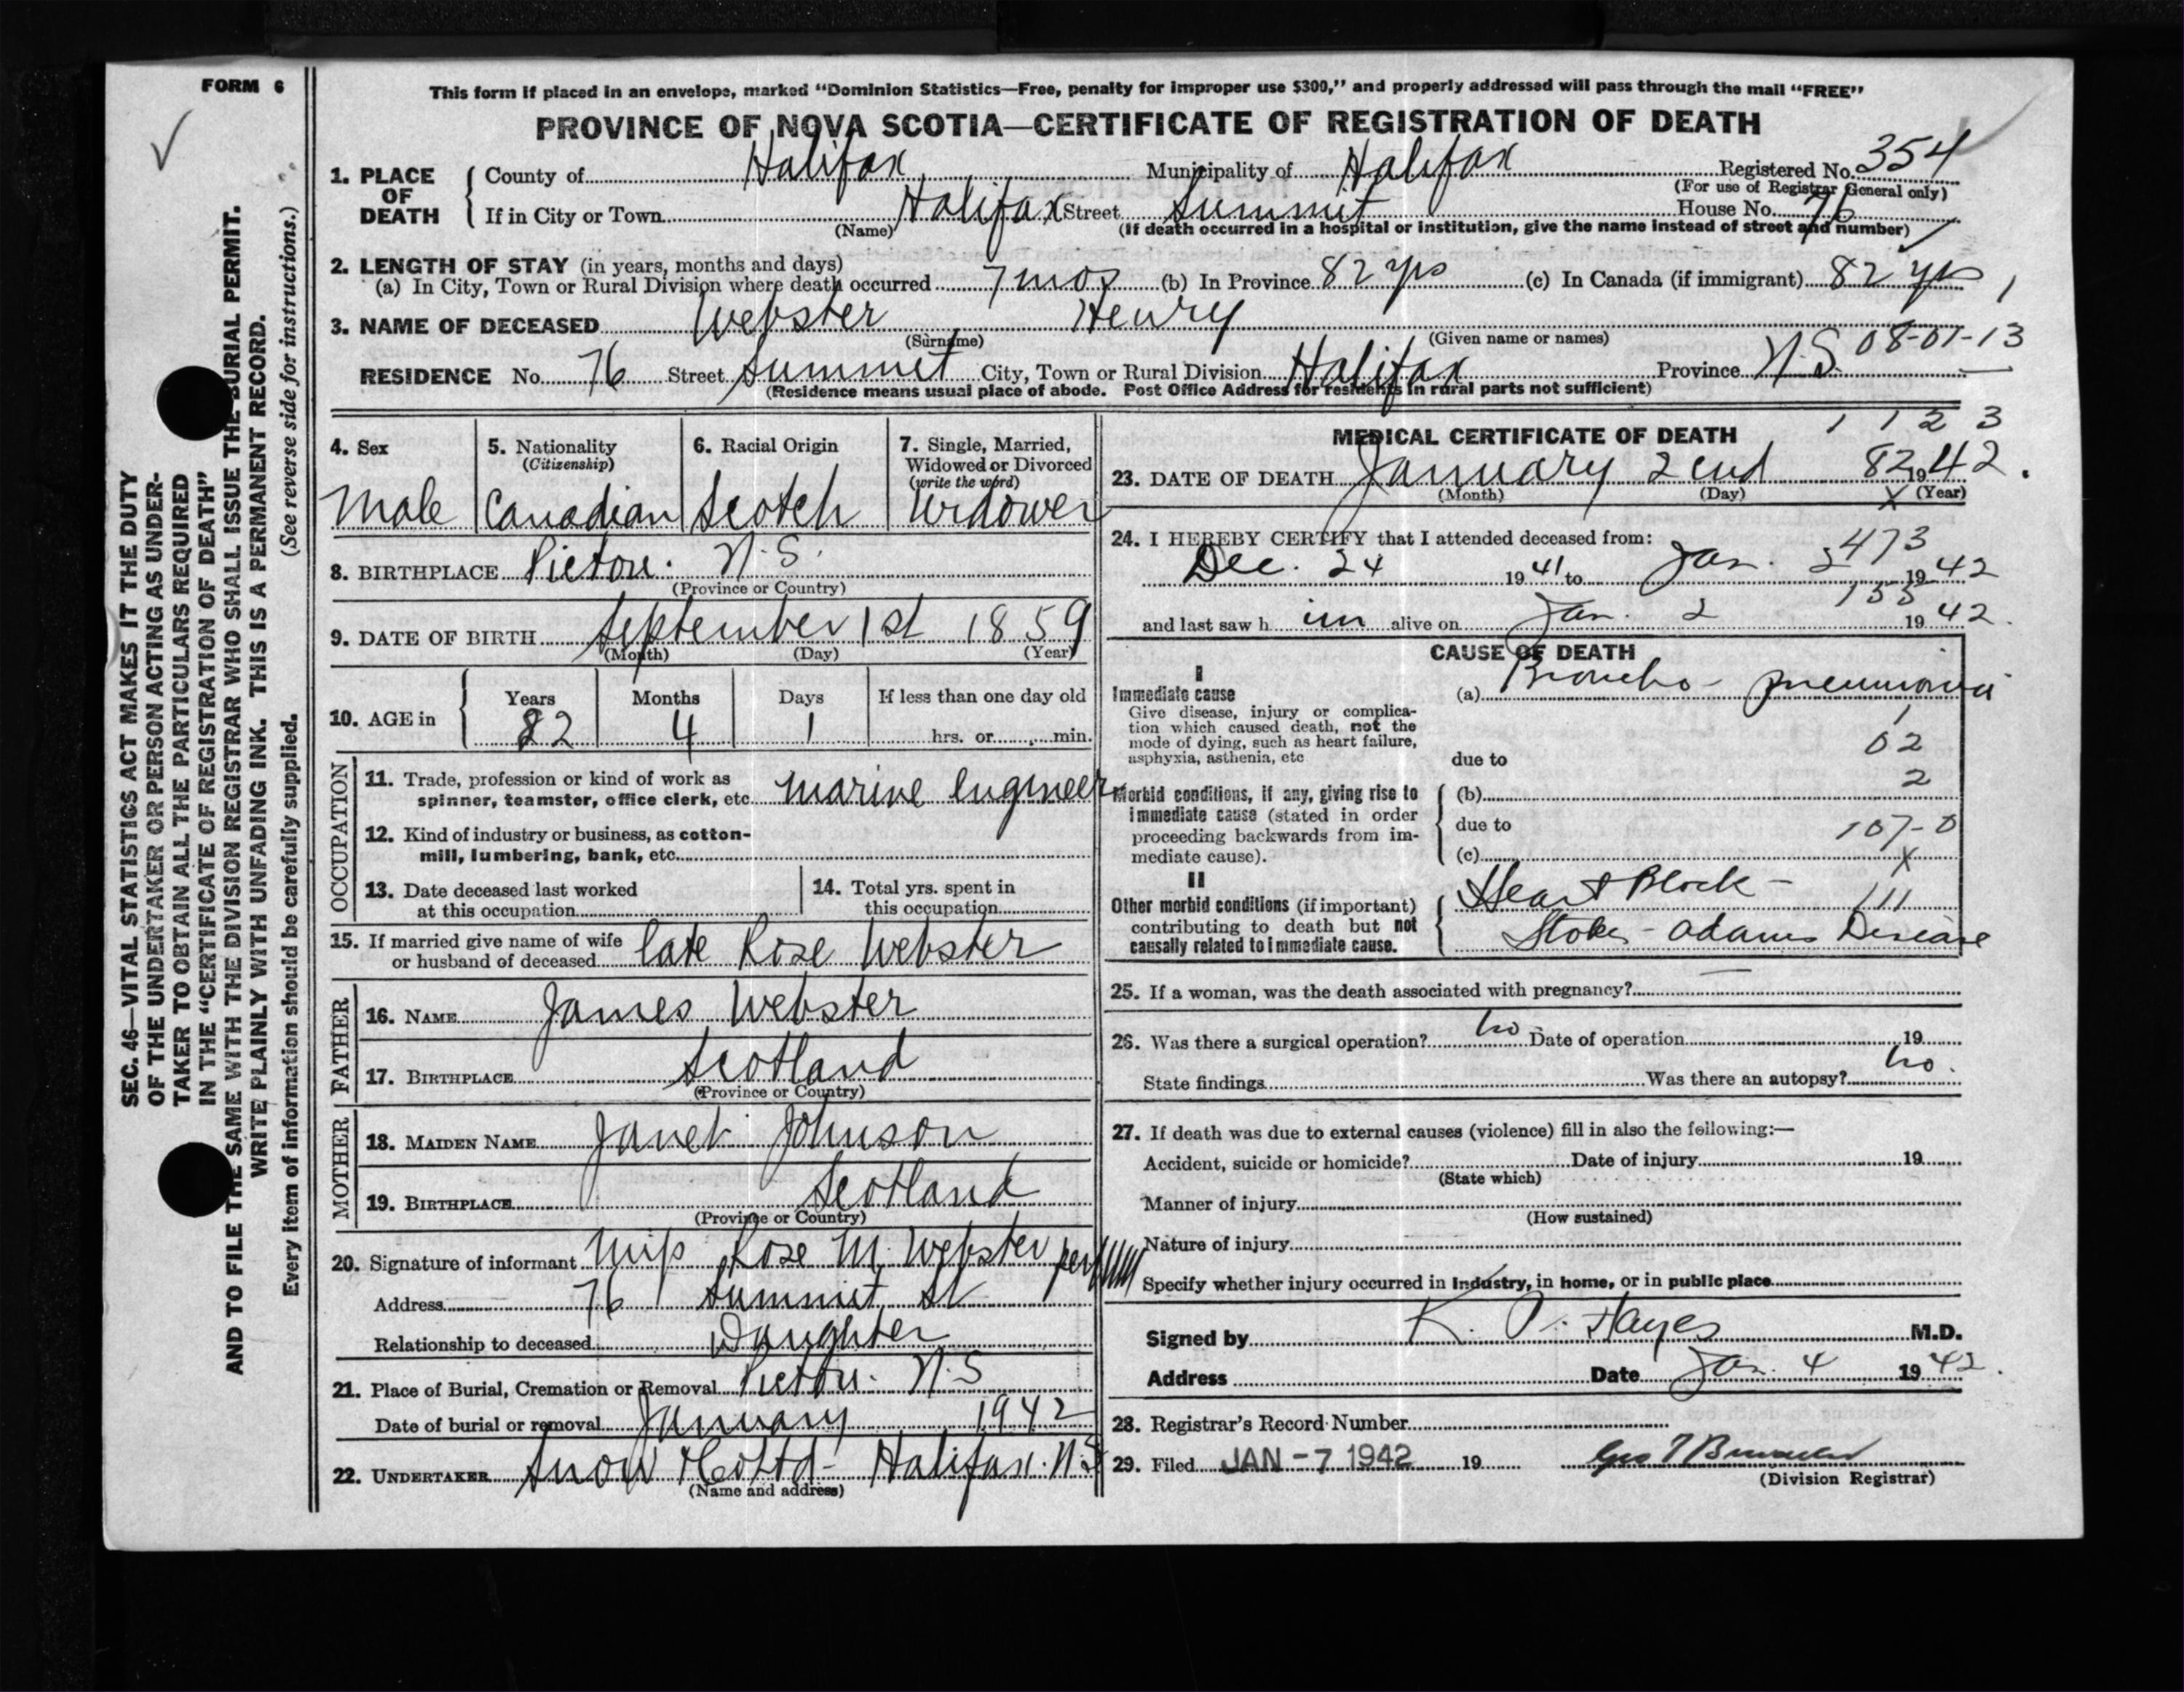 FORM 6
This form if placed in an envelope, marked “Dominion Statistics—Free, penalty for improper use $300,” and properly addressed will pass through the mail “FREE”
PROVINCE OF NOVA SCOTIA—CERTIFICATE OF REGISTRATION OF DEATH
1. PLACE OF DEATH
County of Halifax Municipality of Halifax Registered No. 354
(For use of Registrar General only)
If in City or Town Halifax Street Summit House No. 76
(Name) (If death occurred in a hospital or institution, give the name instead of street and number)
2. LENGTH OF STAY (in years, months and days)
(a) In City, Town or Rural Division where death occurred 7 mos (b) In Province 82 yrs (c) In Canada (if immigrant) 82 yrs 1
3. NAME OF DECEASED Webster Henry
(Surname) (Given name or names)
08-01-13
RESIDENCE No. 76 Street Summit City, Town or Rural Division Halifax Province N.S.
(Residence means usual place of abode. Post Office Address for residents in rural parts not sufficient)
4. Sex
Male
5. Nationality
(Citizenship)
Canadian
6. Racial Origin
Scotch
7. Single, Married,
Widowed or Divorced
(write the word)
Widower
8. BIRTHPLACE Pictou. N.S.
(Province or Country)
9. DATE OF BIRTH September 1st 1859
(Month) (Day) (Year)
10. AGE in
Years Months Days If less than one day old
82 4 1 hrs. or min.
OCCUPATION
11. Trade, profession or kind of work as
spinner, teamster, office clerk, etc. Marine Engineer
12. Kind of industry or business, as cotton-
mill, lumbering, bank, etc.
13. Date deceased last worked
at this occupation
14. Total yrs. spent in
this occupation
15. If married give name of wife
or husband of deceased late Rose Webster
FATHER
16. NAME James Webster
17. BIRTHPLACE Scotland
(Province or Country)
MOTHER
18. MAIDEN NAME Janet Johnson
19. BIRTHPLACE Scotland
(Province or Country)
20. Signature of informant Miss Rose M. Webster per
Address 76 Summit St
Relationship to deceased Daughter
21. Place of Burial, Cremation or Removal Pictou. N.S
Date of burial or removal January 1942
22. UNDERTAKER Snow & Co Ltd - Halifax. N.S
(Name and address)
1 1 2 3
MEDICAL CERTIFICATE OF DEATH
23. DATE OF DEATH January 2end 82 1942.
(Month) (Day) X (Year)
24. I HEREBY CERTIFY that I attended deceased from:
473
Dec. 24 1941 to Jan. 2 1942
155
and last saw him alive on Jan. 2 1942.
CAUSE OF DEATH
I
Immediate cause
Give disease, injury or complica-
tion which caused death, not the
mode of dying, such as heart failure,
asphyxia, asthenia, etc
(a) Broncho - pneumonia
1
02
due to
2
Morbid conditions, if any, giving rise to
immediate cause (stated in order
proceeding backwards from im-
mediate cause).
(b)
due to 107-0
(c) X
II
Other morbid conditions (if important)
contributing to death but not
causally related to immediate cause.
Heart Block -
111
Stokes - Adams Disease
25. If a woman, was the death associated with pregnancy? —
26. Was there a surgical operation? no Date of operation 19
State findings Was there an autopsy? no.
27. If death was due to external causes (violence) fill in also the following:—
Accident, suicide or homicide? Date of injury 19
(State which)
Manner of injury
(How sustained)
Nature of injury
Specify whether injury occurred in Industry, in home, or in public place
Signed by K. Hayes M.D.
Address Date Jan. 4 1942.
28. Registrar's Record Number
29. Filed JAN -7 1942 19
(Division Registrar)
SEC. 46—VITAL STATISTICS ACT MAKES IT THE DUTY
OF THE UNDERTAKER OR PERSON ACTING AS UNDER-
TAKER TO OBTAIN ALL THE PARTICULARS REQUIRED
IN THE “CERTIFICATE OF REGISTRATION OF DEATH”
AND TO FILE THE SAME WITH THE DIVISION REGISTRAR WHO SHALL ISSUE THE BURIAL PERMIT.
WRITE PLAINLY WITH UNFADING INK. THIS IS A PERMANENT RECORD.
Every item of information should be carefully supplied. (See reverse side for instructions.)